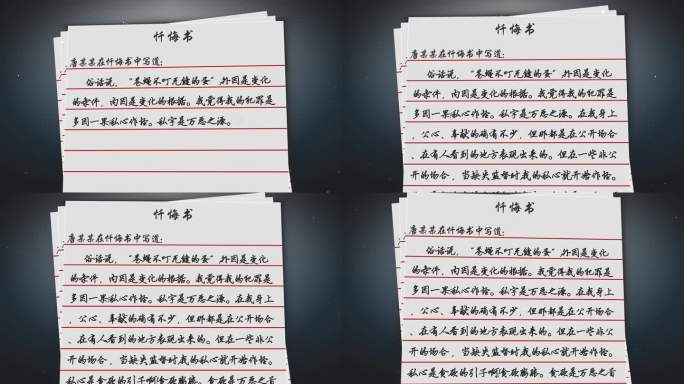 忏悔书
唐某某在忏悔书中写道:
俗话说，“苍蝇不叮无缝的蛋”,外因是变化
的条件，内因是变化的根据。我觉得我的犯罪是
多因一果私心作怪。私字是万恶之源。
忏悔书
唐某某在忏悔书中写道:
俗话说，“苍蝇不叮无缝的蛋”,外因是变化
的条件，内因是变化的根据。我觉得我的犯罪是
多因一果私心作怪。私字是万恶之源。在我身上
、公心、奉献的确有不少，但那都是在公开场合
、在有人看到的地方表现出来的。但在一些非公
开的场合，当缺失监督时我的私心就开始作怪。
忏悔书
唐某某在忏悔书中写道:
俗话说，“苍蝇不叮无缝的蛋”,外因是变化
的条件，内因是变化的根据。我觉得我的犯罪是
多因一果私心作怪。私字是万恶之源。在我身上
、公心、奉献的确有不少，但那都是在公开场合
、在有人看到的地方表现出来的。但在一些非公
开的场合，当缺失监督时我的私心就开始作怪。
私心是贪欲的引子啊!贪欲膨胀。贪欲是万恶之首
忏悔书
唐某某在忏悔书中写道:
俗话说，“苍蝇不叮无缝的蛋”,外因是变化
的条件，内因是变化的根据。我觉得我的犯罪是
多因一果私心作怪。私字是万恶之源。在我身上
、公心、奉献的确有不少，但那都是在公开场合
、在有人看到的地方表现出来的。但在一些非公
开的场合，当缺失监督时我的私心就开始作怪。
私心是贪欲的引子啊!贪欲膨胀。贪欲是万恶之首